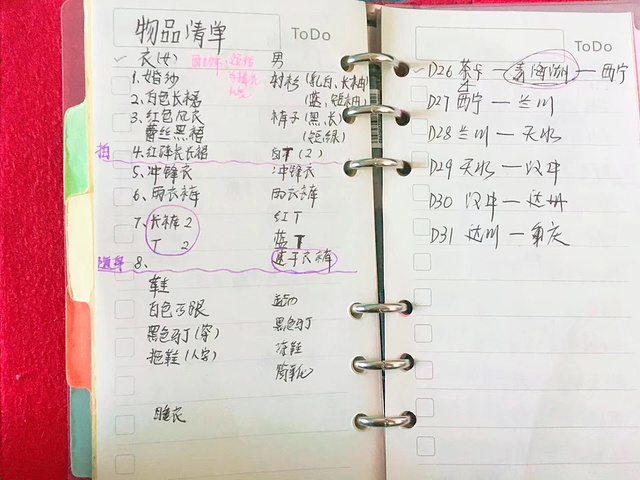 物品清单
ToDo
✓ 衣(女) 男
1.婚纱 衬衫(乳白、长袖)
2.白色长裙 (蓝、短袖)
3.红色风衣 裤子(黑、长)
蕾丝黑裙 (短、绿)
拍 4.红碎花长裙 白T(2)
5.冲锋衣 冲锋衣
6.雨衣裤 雨衣裤
7.长裤 2 红T
T 2 蓝T
8、 速干衣裤
鞋
白色高跟 运动
黑色马丁(穿) 黑色马丁
拖鞋(人字) 凉鞋
睡衣
ToDo
✓D26 茶卡—青海湖—西宁
D27 西宁—兰州
D28 兰州—天水
D29 天水—汉中
D30 汉中—达州
D31 达州—重庆